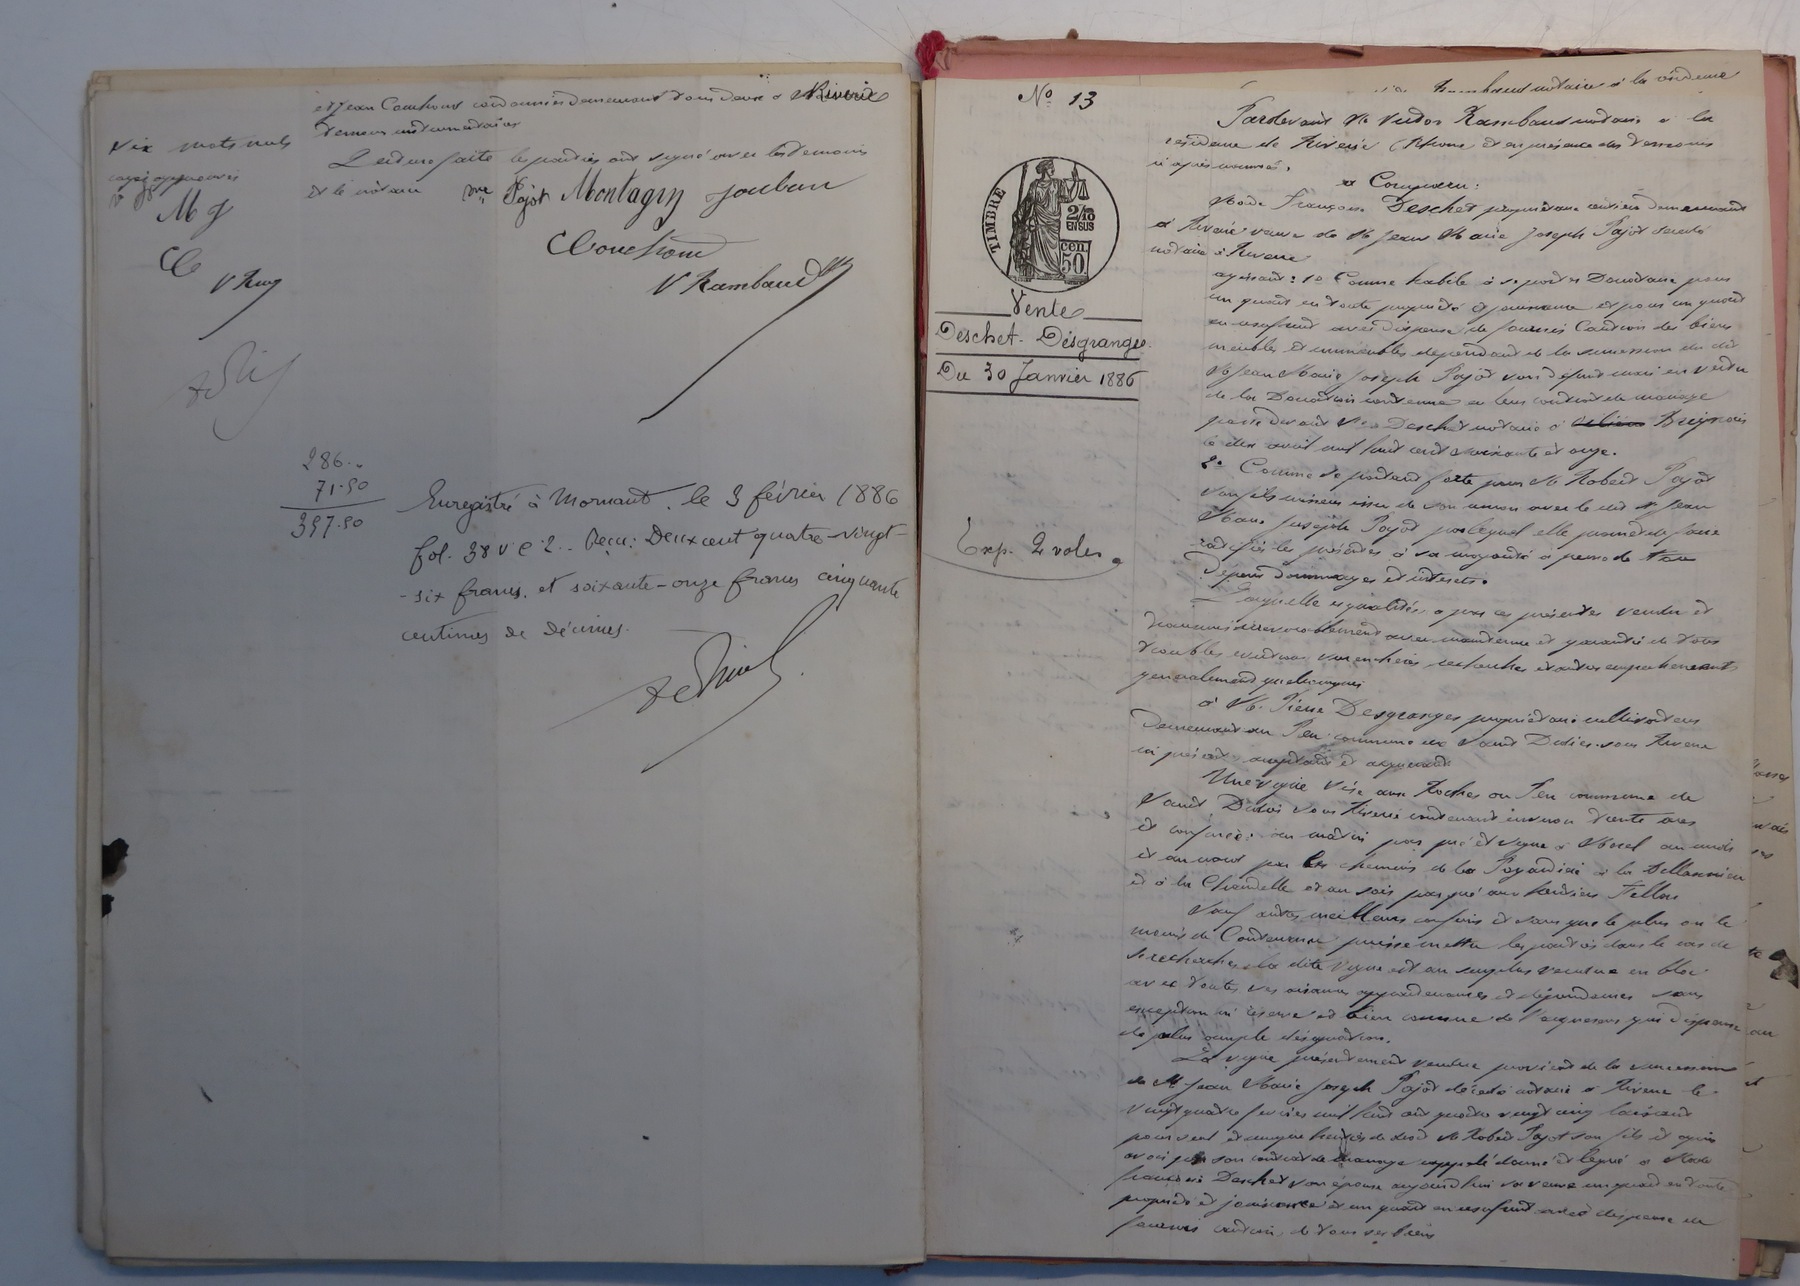 et Jean Couchoud cordonnier demeurant tous deux à Riverie
témoins instrumentaires
Lecture faite les parties ont signé avec les témoins
et le notaire
Dix mots nuls
ici approuvés
Pajot Montagny Joubert
M J
Couchoud
C
V Ram
V Rambaud
286 "
71.50
357.50
Enregistré à Mornant, le 3 février 1886
fol. 38 v c 2. Reçu: Deux cent quatre-vingt-
-six francs, et soixante-onze francs cinquante
centimes de décimes.
No 13
TIMBRE
2/10
EN SUS
50 cen.
Vente
Deschet-Désgranges
Du 30 Janvier 1886
Exp. 2 roles
Rambaud notaire à la résidence
Pardevant Me Victor Rambaud notaire à la
résidence de Riverie (Rhône) et en présence des témoins
ci après nommés.
a Comparu:
Made Françoise Deschet propriétaire rentière demeurant
à Riverie veuve de M Jean Marie Joseph Pajot décédé
notaire à Riverie
agissant: 1o Comme habile à se porter Donataire pour
un quart en toute propriété et jouissance et pour un quart
en usufruit avec dispense de fournir Caution des biens
meubles et immeubles dépendant de la succession du dit
M Jean Marie Joseph Pajot son défunt mari en vertu
de la Donation contenue en leur contrat de mariage
passé devant Me Deschet notaire à
le dix avril mil huit cent soixante et onze.
2o Comme se portant forte pour M Robert Pajot
son fils mineur issu de son union avec le dit M Jean
Marie Joseph Pajot par lequel elle promet de faire
ratifier les présentes à sa majorité à peine de tous
Dépens dommages et intérêts.
Laquelle es qualités a par ces présentes vendu et
troubles évictions surenchères recherches et autres empêchements
généralement quelconques
à M. Pierre Desgranges propriétaire cultivateur
demeurant au Peu commune de Saint Didier-sous Riverie
ici présent acceptant et acquérant
Une vigne sise aux Roches ou Peu commune de
Saint Didier sous Riverie contenant environ trente ares
et confinée: au matin par pré et vigne à Morel au midi
et au nord par les chemins de la Pogardière à la
et à la Chandelle et au soir par pré aux héritiers
Sauf autres meilleurs confins et sans que le plus ou le
moins de Contenance puisse mettre les parties dans le cas de
se rechercher la dite vigne est au surplus vendue en bloc
avec toutes ses aisances appartenances et dépendances sans
exception ni réserve et bien connue de l'acquéreur qui dispense
de plus ample désignation.
La vigne présentement vendue provient de la succession
de M Jean Marie Joseph Pajot décédé notaire à Riverie le
vingt quatre février mil huit cent quatre vingt cinq laissant
pour seul et unique héritier de droit M Robert Pajot son fils et après
avoir par son contrat de mariage rappelé donné et légué à Made
Françoise Deschet son épouse aujourd'hui sa veuve un quart en toute
propriété et jouissance et un quart en usufruit avec dispense de
fournir caution, de tous ses biens